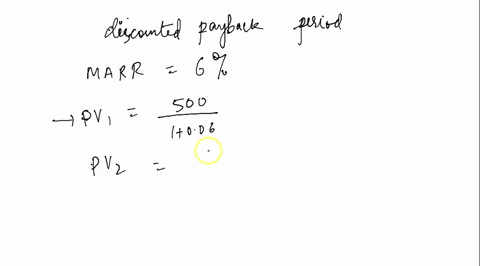 discounted payback period
MARR = 6%
→ PV₁ = 500 / 1+0.06
PV₂ =